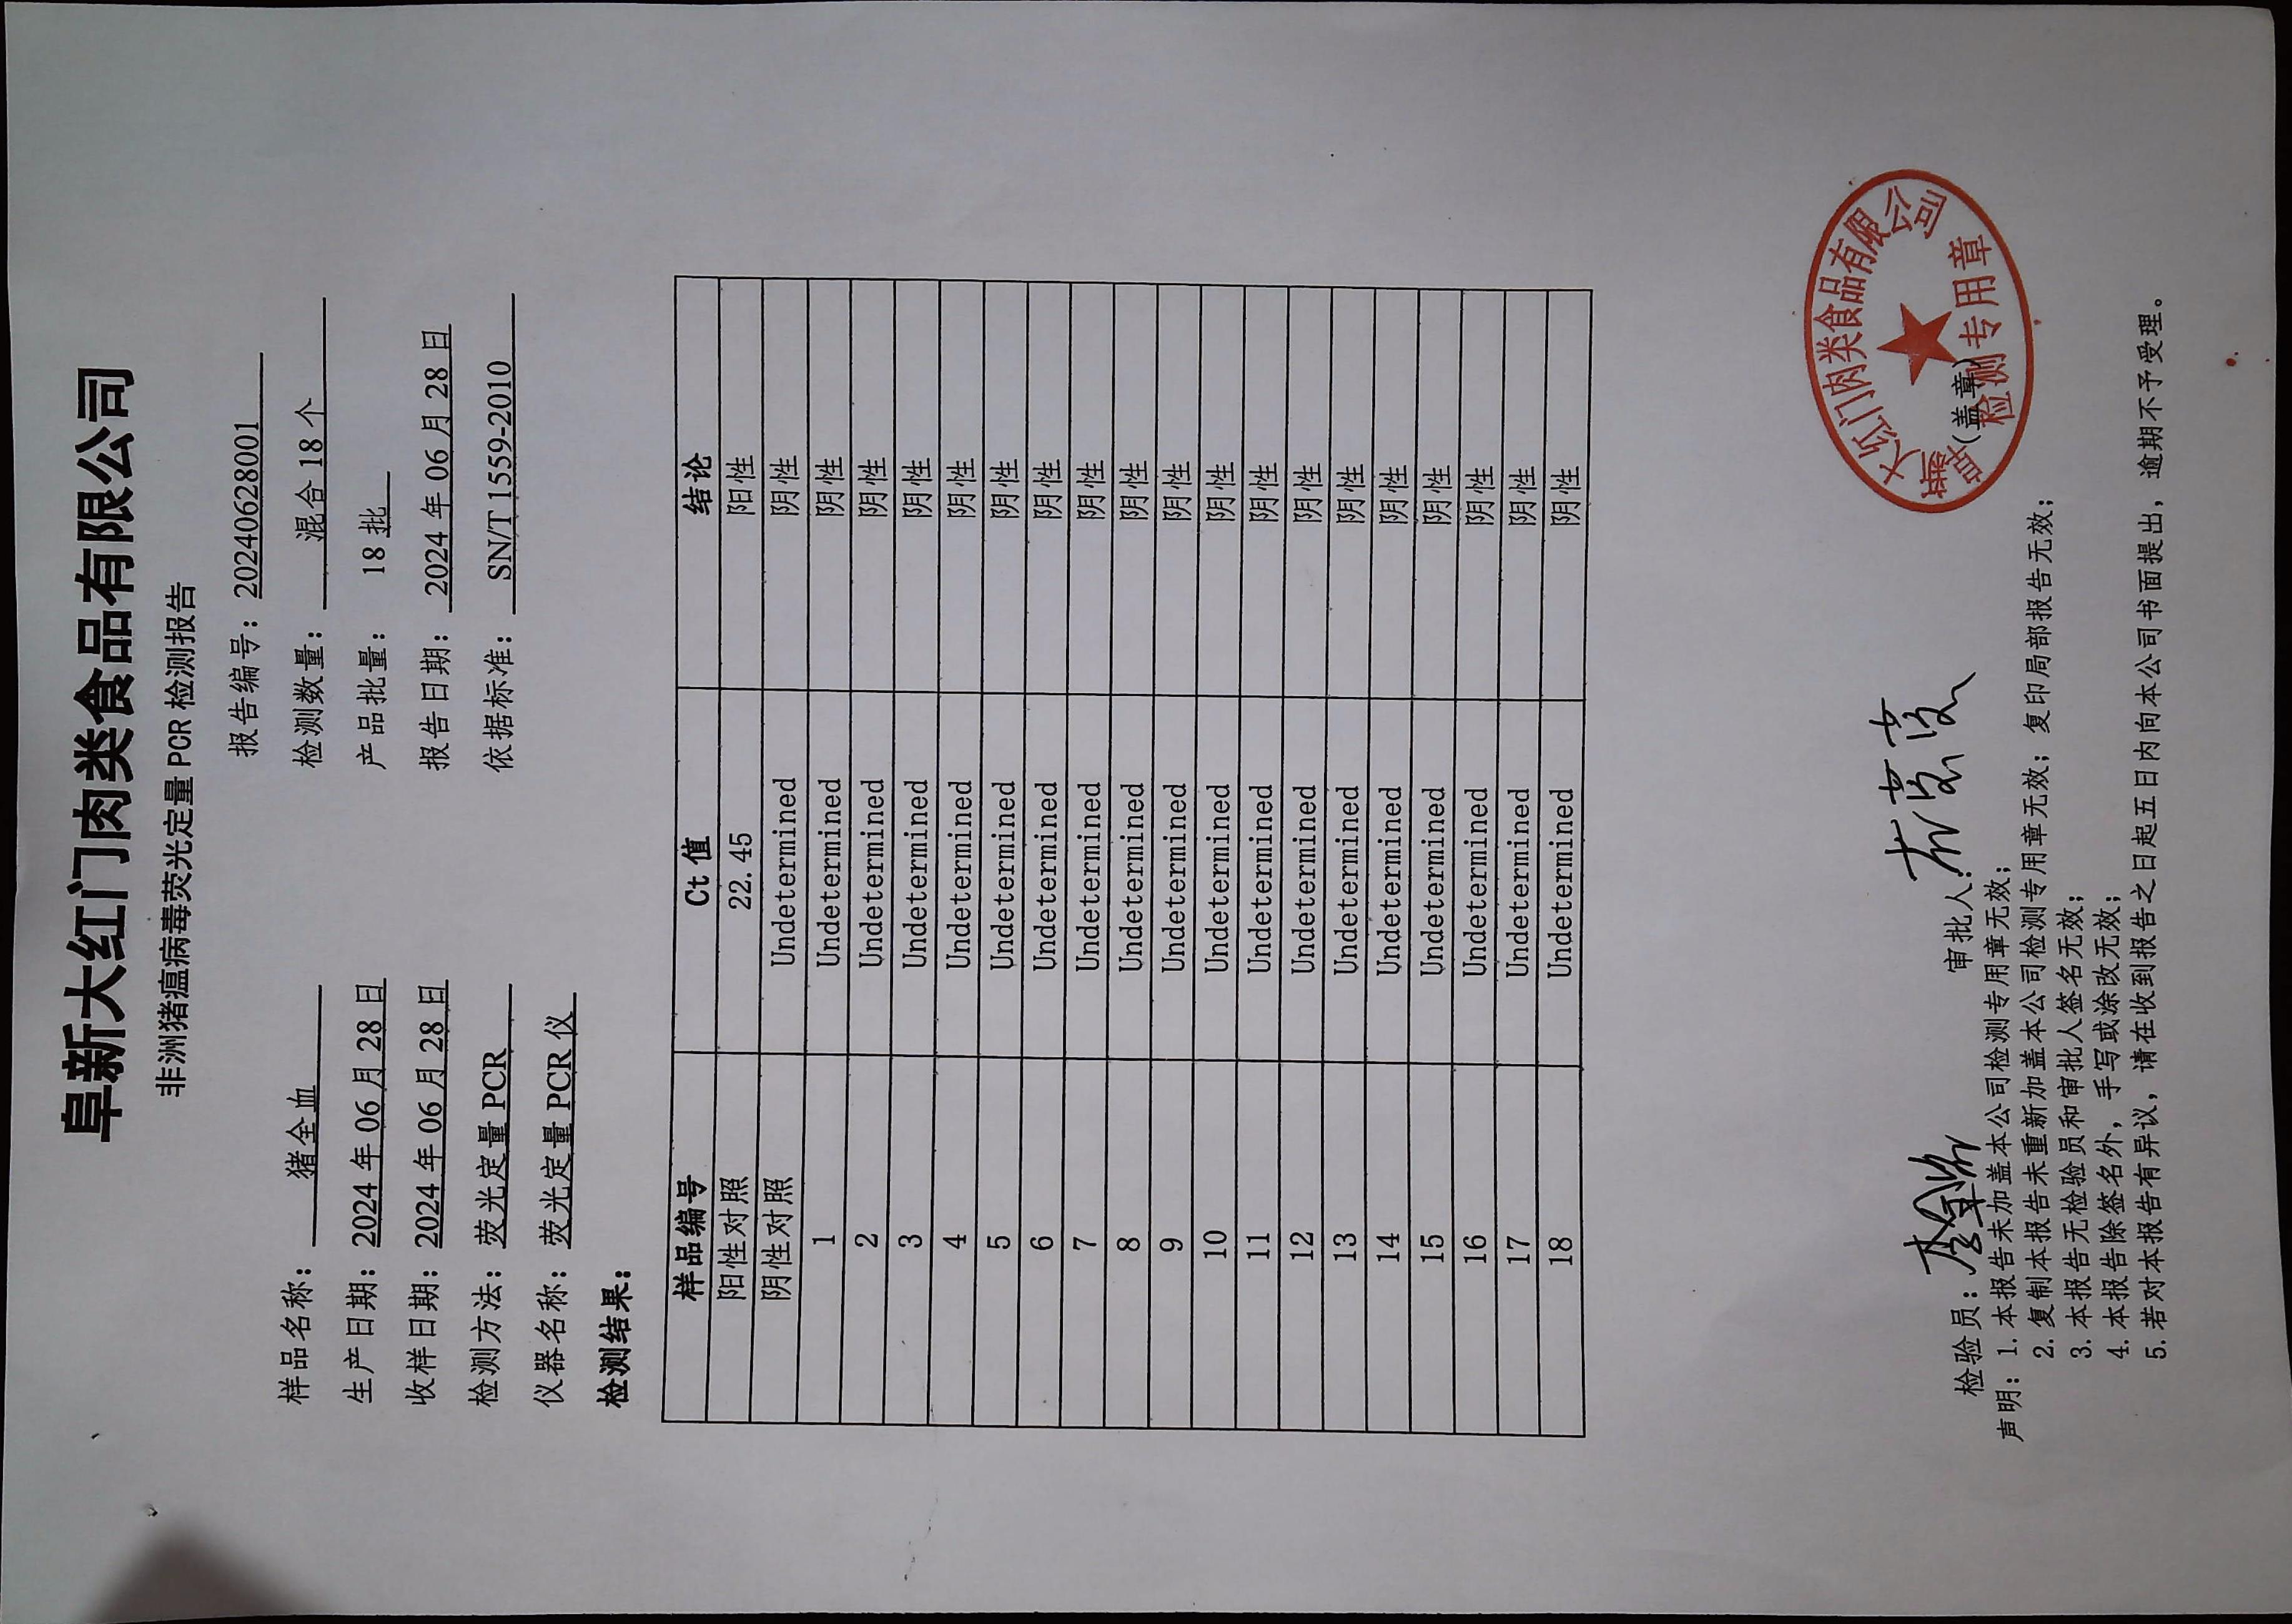 阜新大红门肉类食品有限公司
非洲猪瘟病毒荧光定量 PCR 检测报告
报告编号：20240628001
样品名称：猪全血 检测数量：混合 18 个
生产日期：2024 年 06 月 28 日 产品批量：18 批
收样日期：2024 年 06 月 28 日 报告日期：2024 年 06 月 28 日
检测方法：荧光定量 PCR 依据标准：SN/T 1559-2010
仪器名称：荧光定量 PCR 仪
检测结果：
样品编号 Ct 值 结论
阳性对照 22.45 阳性
阴性对照 Undetermined 阴性
1 Undetermined 阴性
2 Undetermined 阴性
3 Undetermined 阴性
4 Undetermined 阴性
5 Undetermined 阴性
6 Undetermined 阴性
7 Undetermined 阴性
8 Undetermined 阴性
9 Undetermined 阴性
10 Undetermined 阴性
11 Undetermined 阴性
12 Undetermined 阴性
13 Undetermined 阴性
14 Undetermined 阴性
15 Undetermined 阴性
16 Undetermined 阴性
17 Undetermined 阴性
18 Undetermined 阴性
阜新大红门肉类食品有限公司
检测专用章
检验员： 审批人： （盖章）
声明：1.本报告未加盖本公司检测专用章无效；
2.复制本报告未重新加盖本公司检测专用章无效；复印局部报告无效；
3.本报告无检验员和审批人签名无效；
4.本报告除签名外，手写或涂改无效；
5.若对本报告有异议，请在收到报告之日起五日内向本公司书面提出，逾期不予受理。